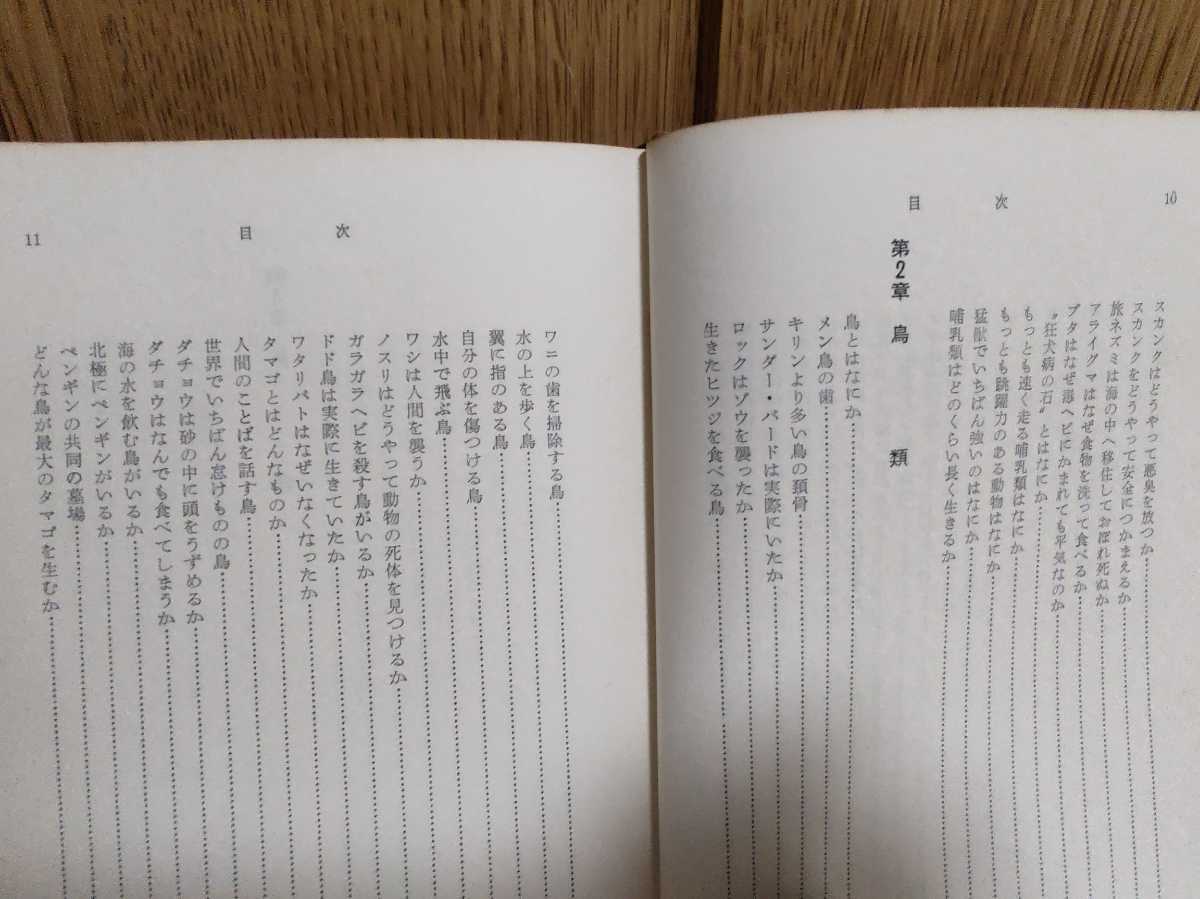 10
目次
スカンクはどうやって悪臭を放つか
スカンクをどうやって安全につかまえるか
旅ネズミは海の中へ移住しておぼれ死ぬか
アライグマはなぜ食物を洗って食べるか
ブタはなぜ毒ヘビにかまれても平気なのか
〝狂犬病の石〟とはなにか
もっとも速く走る哺乳類はなにか
もっとも跳躍力のある動物はなにか
猛獣でいちばん強いのはなにか
哺乳類はどのくらい長く生きるか
第2章 鳥類
鳥とはなにか
メン鳥の歯
キリンより多い鳥の頚骨
サンダー・バードは実際にいたか
ロックはゾウを襲ったか
生きたヒツジを食べる鳥
目次
11
ワニの歯を掃除する鳥
水の上を歩く鳥
翼に指のある鳥
自分の体を傷つける鳥
水中で飛ぶ鳥
ワシは人間を襲うか
ノスリはどうやって動物の死体を見つけるか
ガラガラヘビを殺す鳥がいるか
ドドドドは実際に生きていたか
ワタリバトはなぜいなくなったか
タマゴとはどんなものか
人間のことばを話す鳥
世界でいちばん怠けものの鳥
ダチョウは砂の中に頭をうずめるか
ダチョウはなんでも食べてしまうか
海の水を飲む鳥がいるか
北極にペンギンがいるか
ペンギンの共同の墓場
どんな鳥が最大のタマゴを生むか